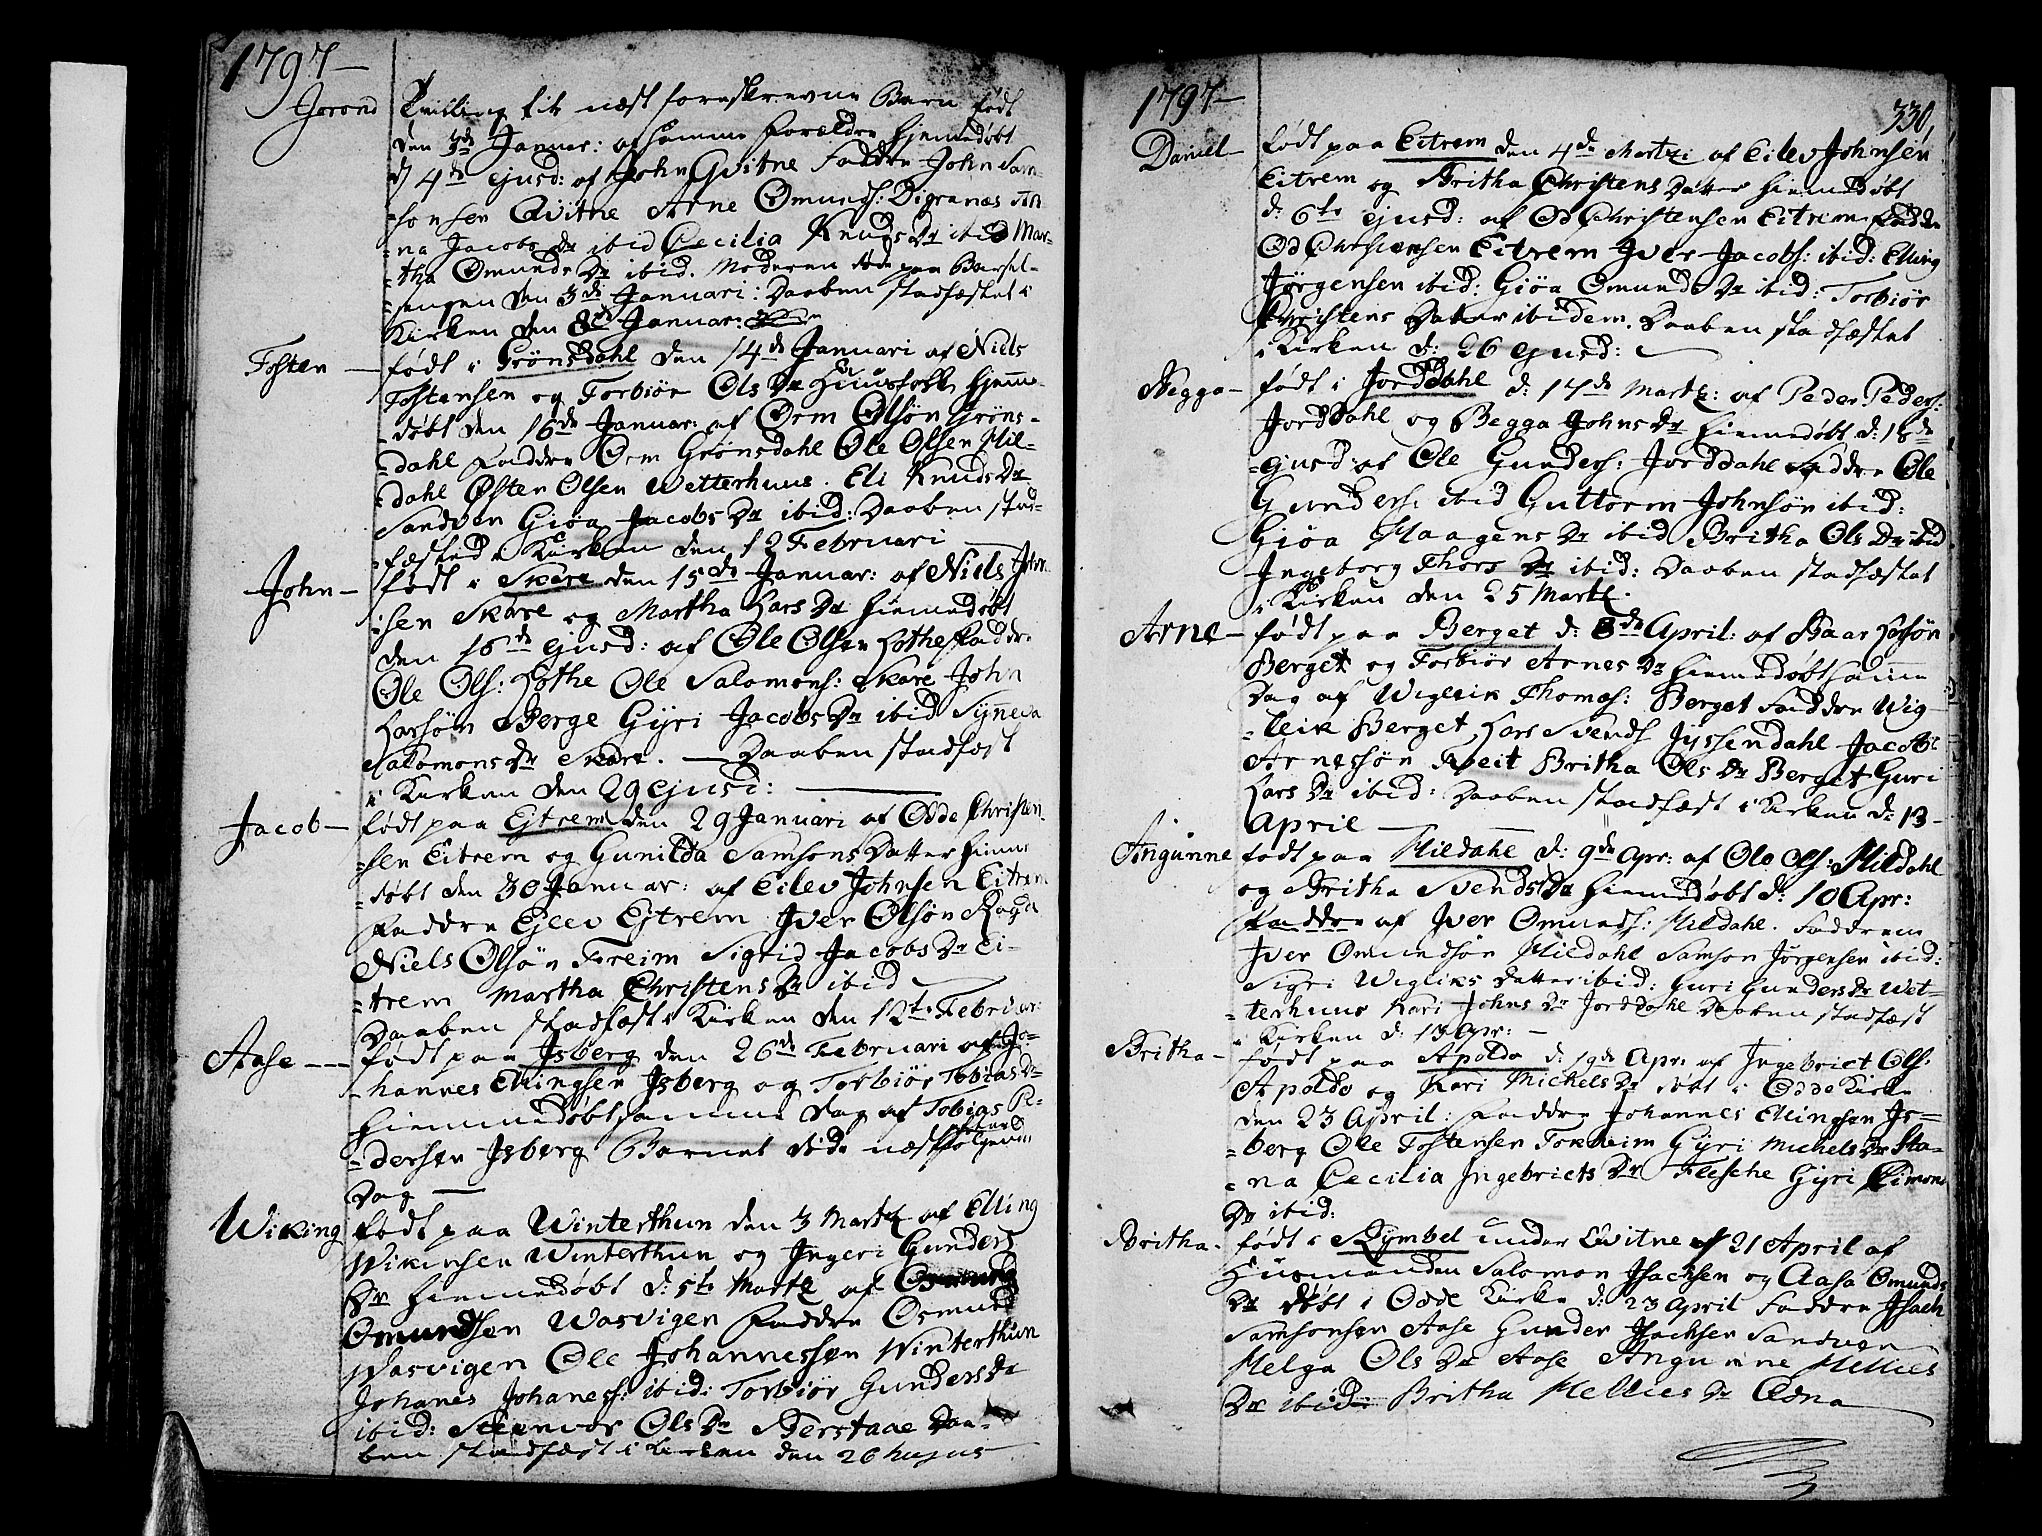 1797
Jorond Tvilling til næst foreskrevne Barn født
den 3de Januar: af samme Forældre hjemmedøbt
d 4de ejusd: af John Qvitne Faddre John Sam-
sonsen Qvitne Arne Omunds: Digranæs
na Jacobs Dr ibid Cecilia Knuds Dr ibid Mar-
tha Omunds Dr ibid. Moderen døde paa Barsel-
sengen den 3di Januari: Daaben stadfæstet i
Kirken den 8de Januar:
Tosten født i Grönsdahl den 14de Januari af Niels
Tostensen og Torbiör Ols Dr Huusfolk hjemme-
døbt den 16de Januar: af Orm Olsön Gröns-
dahl Faddre Orm Grönsdahl Ole Olsen Hil-
dahl Østen Olsen Wetterhuus. Eli Knuds Dr
Sandven Giøa Jacobs Dr ibid: Daaben stad-
fæsted i Kirken den 12 Februari
John født i Skare den 15de Januar: af Niels John-
sen Skare og Martha Lars Dr hiemedøbt
den 16de ejusd: af Ole Olsen Lothe Faddre
Ole Ols: Lothe Ole Salomons: Skare John
Larsön Berge Gyri Jacobs Dr ibid Synneva
Salomons Dr Skare. Daaben stadfæst
i Kirken den 29 ejusd:
Jacob født paa Ejtrem den 29 Januari af Odde Christen-
sen Eitrem og Gunilda Samsons Datter hieme-
døbt den 30 Januar: af Eilev Johnsen Eitrem
Faddre Ejlev Ejtrem Iver Olsön Ragde
Niels Olsön Freim Sigrid Jacobs Dr Ei-
trem Martha Christens Dr ibid
Daaben stadfæst i Kirken den 12te Februar:
Aase født paa Isberg den 26de Februari af Jo-
hannes Ellingsen Isberg og Torbiör Tobias Dr
Hiemmedøbt samme Dag af Tobias Pe-
dersen Isberg Barnet døde næstfølgende
Dag
Wiking født paa Winterthun den 3 Martz af Elling
Wikinsen Winterthun og Ingeri Gunders
Dr hiemedøbt d: 5te Martz af
Omundsen Wasvigen Faddre Osmund
Wasvigen Ole Johannessen Winterthun
Johanes Johaness: ibid: Torbiör Gunders Dr
ibid: Steenvor Ols Dr Berstaae Daa-
ben stadfæst i Kirken den 26 hujus
1797
330,
Daniel født paa Eitrem den 4de Martzi af Eilev Johnsen
Eitrem og Britha Christens Datter hiemedøbt
d: 6te ejusd: af Od Christensen Eitrem Faddre
Od Christensen Eitrem Iver Jacobs: ibid: Elling
Jörgensen ibid: Giøa Omunds Dr ibid: Torbiör
Christens Datter ibidem. Daaben stadfæstet
i Kirken d: 26 ejusd:
Begga født i Jorddahl d: 17de Martz: af Peder Peders:
Jorddahl og Begga Johns Dr hiemedøbt d: 18de
ejusd: af Ole Gunders: Jorddahl Faddre Ole
Gunders: ibid Guttorm Johnsön ibid:
Giøa Haagens Dr ibid Britha Ols Dr ibid
Ingeborg Thors Dr ibid: Daaben stadfæstet
i Kirken den 25 Martz.
Arne født paa Berget d: 8de April: af Baar Larsön
Berget og Torbiör Arnes Dr hiemedøbt samme
Dag af Wigleik Thomes: Berget Faddre Wig-
leik Berget, Lars Svends Jyssendahl Jacob
Arnessön Tveit Britha Ols Dr Berget Guri
Lars Dr ibid: Daaben stadfæst i Kirken d: 13
April
Angunne født paa Hildahl d: 9de Apr: af Ole Ols: Hildahl
og Britha Svends Dr hiemedøbt d: 10 Apr:
Faddre af Iver Omunds: Hildahl. Faddrene
Iver Omundsön Hildahl Samson Jörgensen ibid:
Sigri Wigliks Datter ibid: Guri Gunders Dr Wet-
terhuus Kari Johns Dr Jorddahl Daaben stadfæst
i Kirken d: 13 Apr:
Britha født paa Apoldo d: 19de Apr: af Ingebrict Ols:
Apoldo og Kari Michels Dr døbt i Odde Kirke
den 23 April: Faddre Johannes Ellingsen Is-
berg Ole Tostensen Tokheim Gyri Michels Dr Sta-
na Cecilia Ingebricts Dr Flesche Gyri Simons
Dr ibid:
Britha født i Rymbel under Qvitne d 21 April af
Husmanden Salomon Isachsen og Aasa Omunds
Dr døbt i Odde Kirke d: 23 April Faddre Isach
Samsonsen Aase Gunder Isachsen Sandven
Helga Ols Dr Aase Angunne Hellies
Dr ibid: Britha Hellies Dr Edna